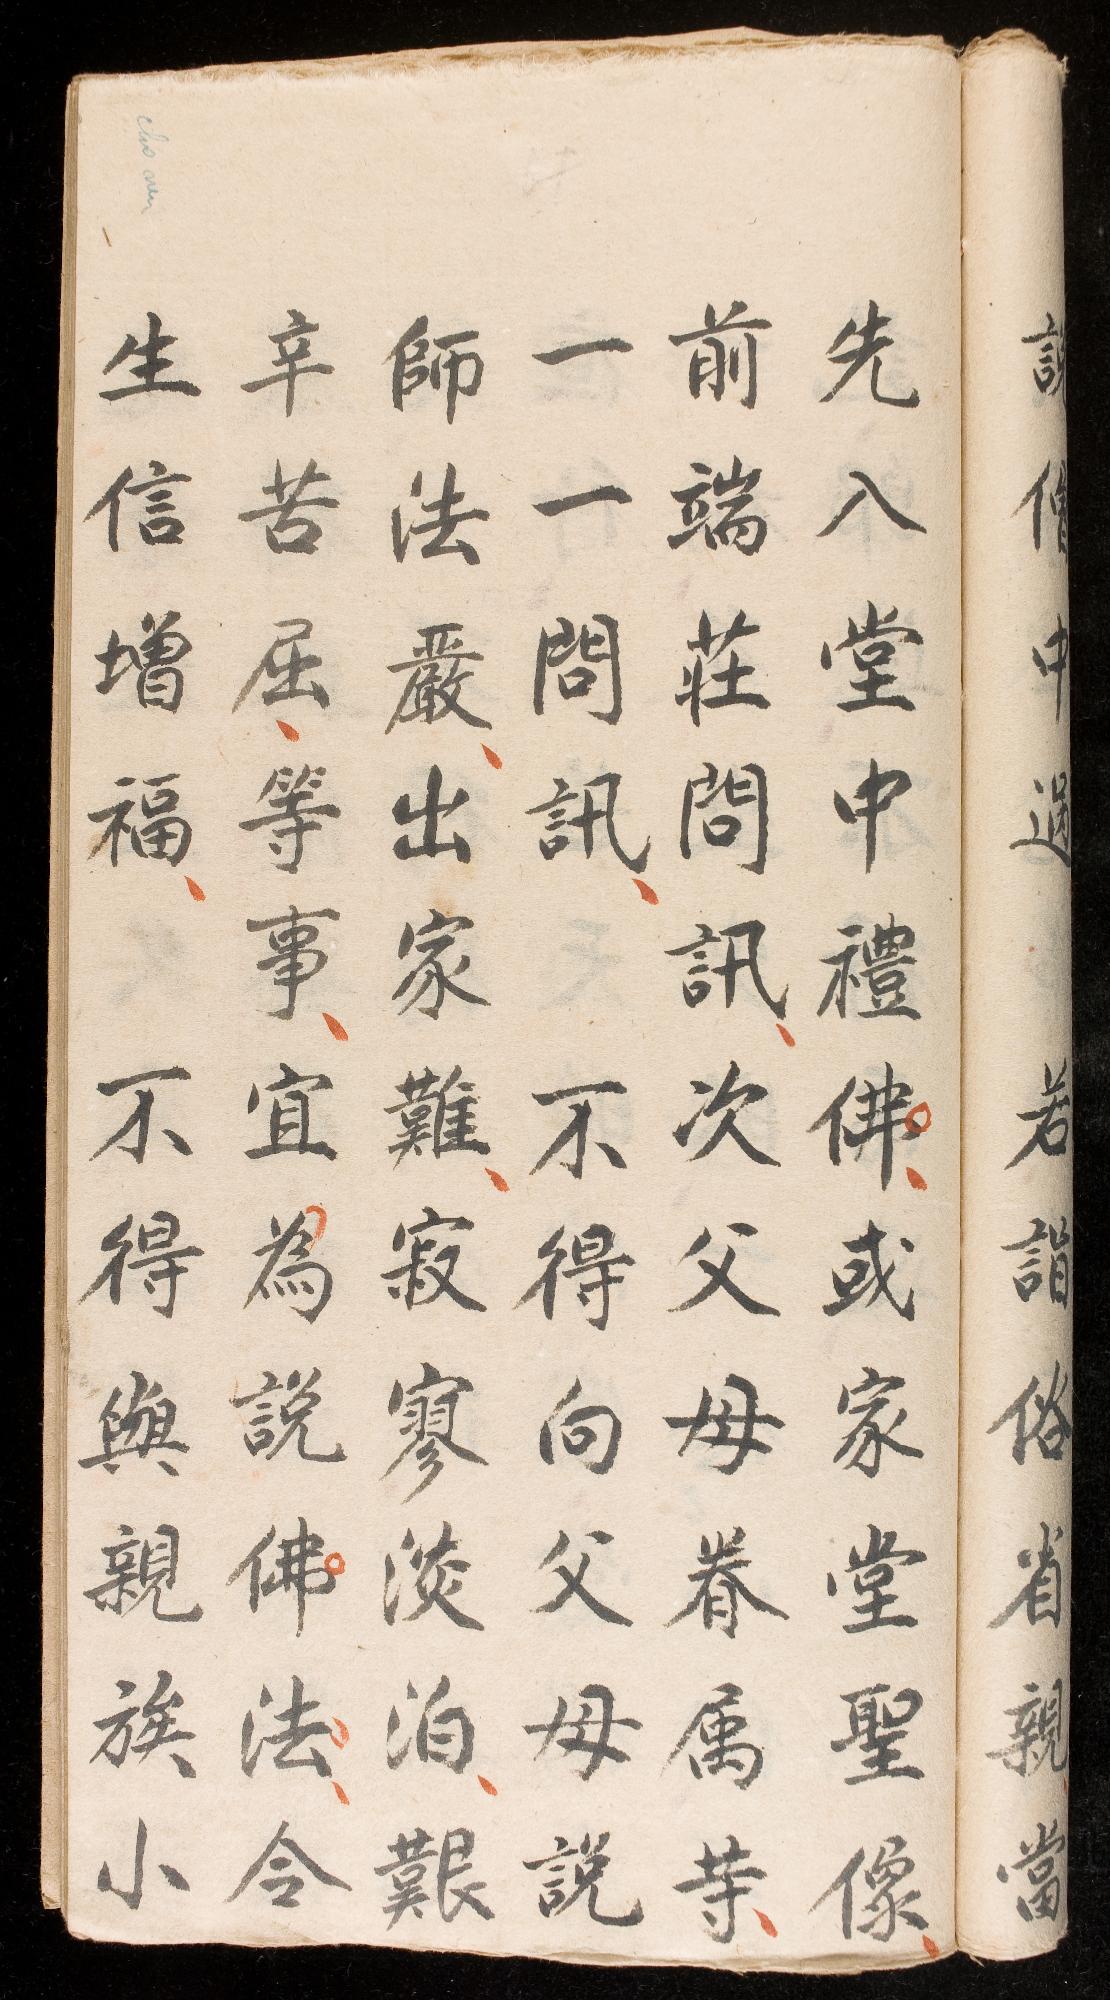 說僧中過　若詣俗省親、當
先入堂中禮佛、或家堂聖像、
前端莊問訊、次父母眷属等、
一一問訊、不得向父母說
師法嚴、出家難、寂寥淡泊、艱
辛苦屈、等事、宜為說佛法、令
生信增福、不得與親族小